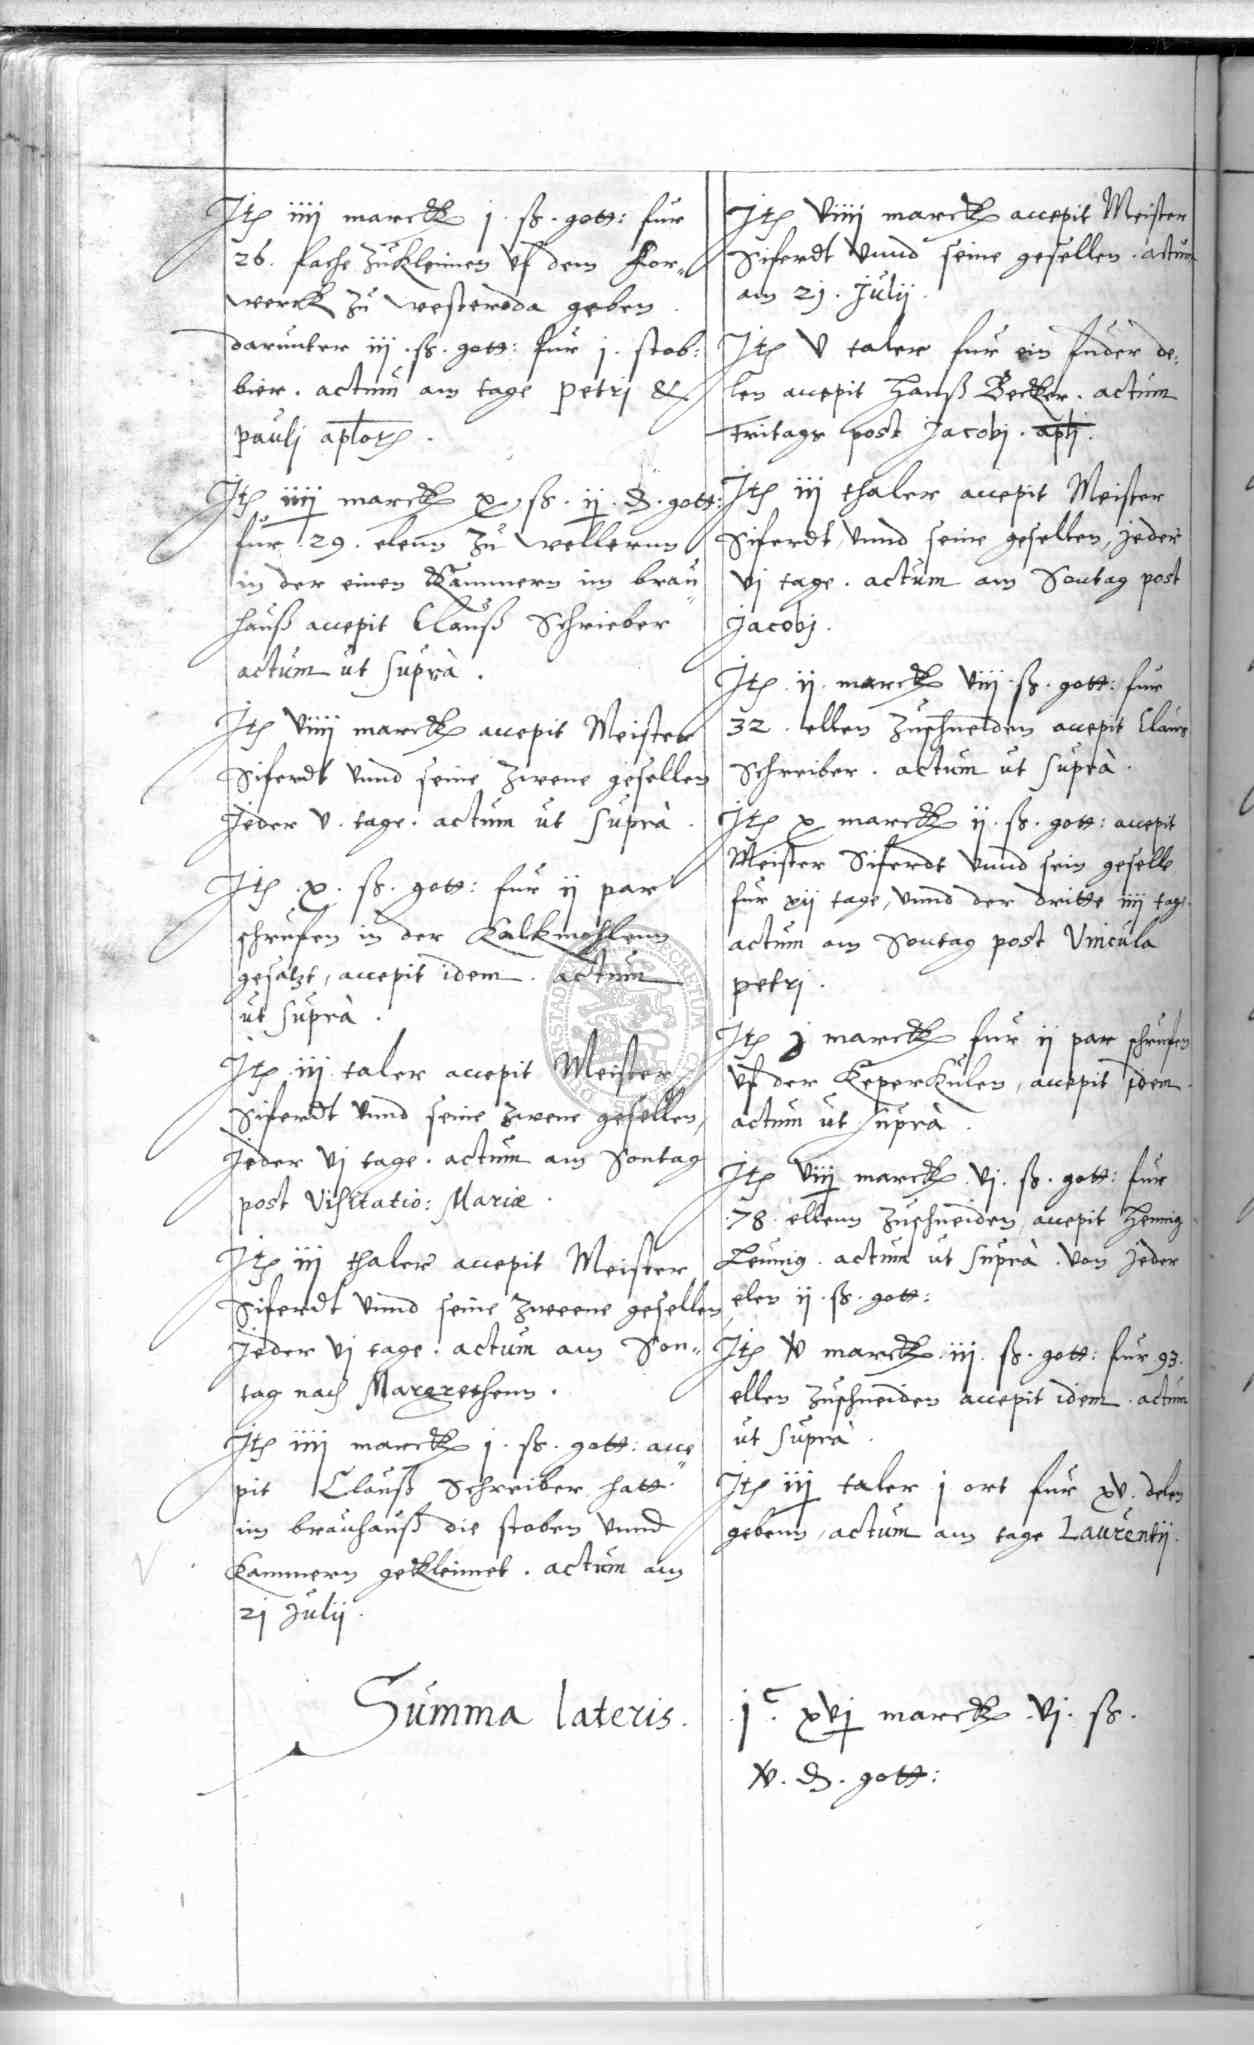 Jtem iiij marck j. ß. gott: fur
26. fache zukleimen vf dem For-
werck zu westeroda geben
darunter iij. ß. gott: fur j. stob:
bier. actum am tage Petri &
pauli aplorum.
Jtem iiij marck x ß. ij. d. gott:
fur 29. elenn zu wellerun
in der einen Kammern im brau-
hauß accepit Clauß Schrieber
actum ut suprà.
Jtem viiij marck accepit Meister
Siferdt vnnd seine zwene gesellen
Jeder v. tage. actum ut suprà.
Jtem .x. ß. gott: fur ij par
schrufen in der Kalkmohlenn
gesatzt, accepit idem. actum
ut suprà.
Jtem iij taler accepit Meister
Siferdt vnnd seine zwene gesellen,
Jeder vj tage. actum am Sontag
post Visitatio: Mariæ.
Jtem iij thaler accepit Meister
Siferdt vnnd seine zweene gesellen
Jeder vj tage. actum am Son-
tag nach Margrethenn.
Jtem iiij marck j. ß. gott: acce-
pit Clauß Schreiber hatt
im brauhauß die stoben vnnd
Kammern gekleimet. actum am
21 Julij.
Jtem viiij marck accepit Meister
Siferdt vnnd seine gesellen. actum
am 21. Julij.
Jtem v taler fur ein fuder de:
len accepit Hanß Becker. actum
Fritags post Jacobj. apli.
Jtem iij thaler accepit Meister
Siferdt, vnnd seine gesellen, Jeder
vj tage. actum am Sontag post
Jacobj.
Jtem .ij. marck viij. ß. gott: fur
32. ellen zuschneiden accepit Claus
Schreiber. actum ut suprà.
Jtem x marck ij. ß. gott: accepit
Meister Siferdt vnnd sein gesell
fur xij tage, vnnd der dritte iiij tage.
actum am Sontag post Vincula
petrj.
Jtem j marck fur ij par schrufen
vf der Keperkulen, accepit idem.
actum ut suprà.
Jtem viij marck .vj. ß. gott: fur
78. ellenn zuschneiden accepit Hennig
actum ut suprà. von Jeder
elen ij. ß. gott:
Jtem x marck .iij. ß. gott: fur 93.
ellen zuschneiden accepit idem. actum
ut suprà.
Jtem iij taler j ort fur xv. delen
gebenn, actum am tage Laurentij.
Summa lateris. jc. xvj marck .vj. ß.
v. d. gott: